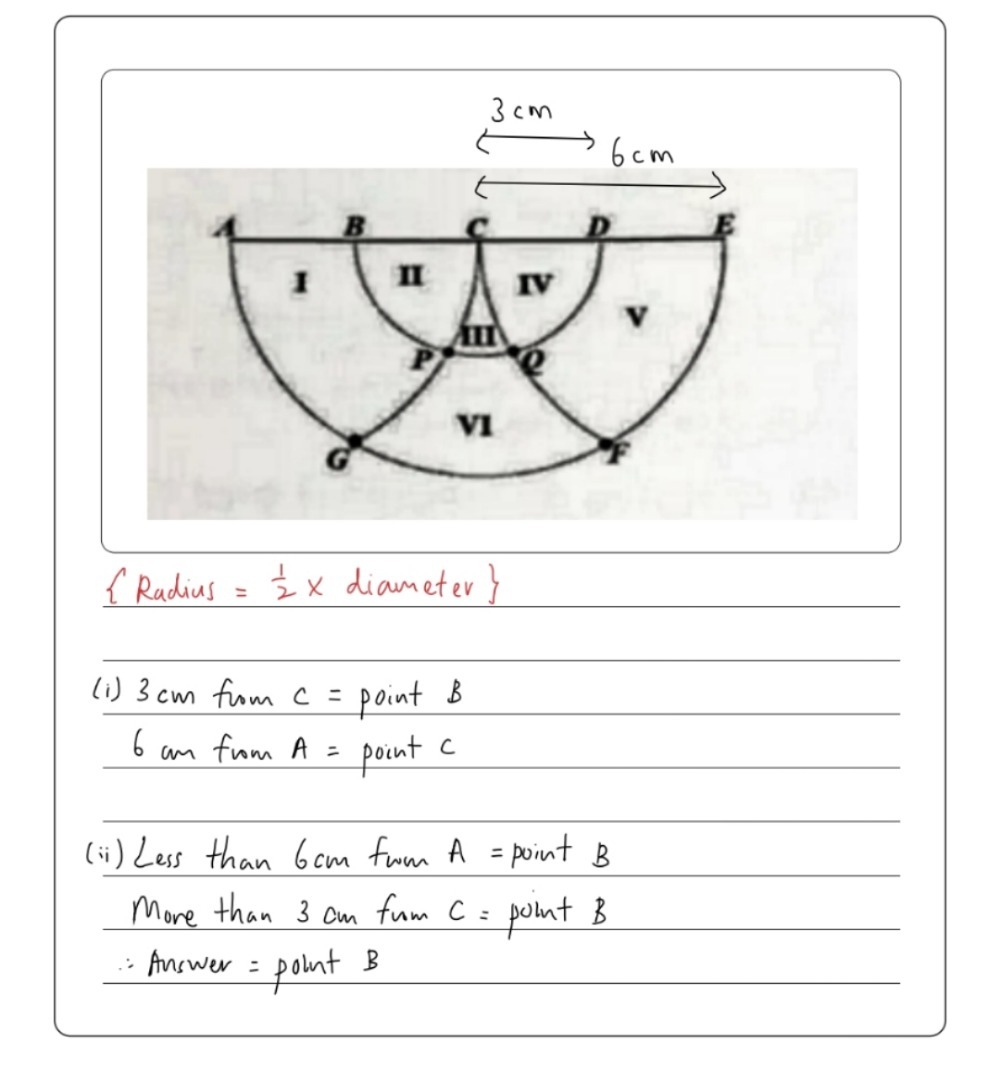 3 cm
6 cm
A B C D E
I II IV
V
III
P Q
VI
G F
{ Radius = 1/2 x diameter }
(i) 3 cm from C = point B
6 cm from A = point C
(ii) Less than 6 cm from A = point B
More than 3 cm from C = point B
∴ Answer = point B